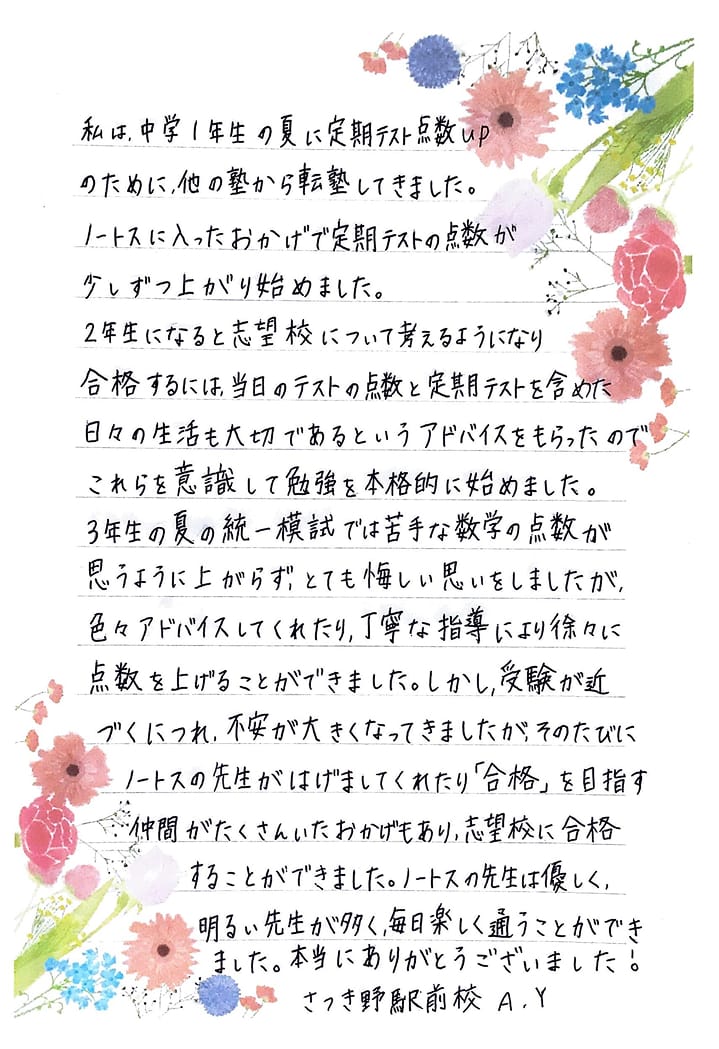 私は、中学1年生の夏に定期テスト点数up
のために、他の塾から転塾してきました。
ノートスに入ったおかげで定期テストの点数が
少しずつ上がり始めました。
2年生になると志望校について考えるようになり
合格するには、当日のテストの点数と定期テストを含めた
日々の生活も大切であるというアドバイスをもらったので
これらを意識して勉強を本格的に始めました。
3年生の夏の統一模試では苦手な数学の点数が
思うように上がらず、とても悔しい思いをしましたが、
色々アドバイスしてくれたり、丁寧な指導により徐々に
点数を上げることができました。しかし、受験が近
づくにつれ、不安が大きくなってきましたが、そのたびに
ノートスの先生がはげましてくれたり「合格」を目指す
仲間がたくさんいたおかげもあり、志望校に合格
することができました。ノートスの先生は優しく、
明るい先生が多く、毎日楽しく通うことができ
ました。本当にありがとうございました!
さつき野駅前校 A.Y